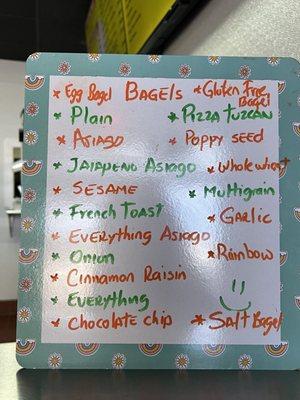 BAGELS
* Egg Bagel
* Plain
* Asiago
* Jalapeno Asiago
* Sesame
* French Toast
* Everything Asiago
* Onion
* Cinnamon Raisin
* Everything
* Chocolate chip
* Gluten Free
Bagel
* Pizza Tuzcan
* Poppy seed
* Whole wheat
* Multigrain
* Garlic
* Rainbow
* Salt Bagel